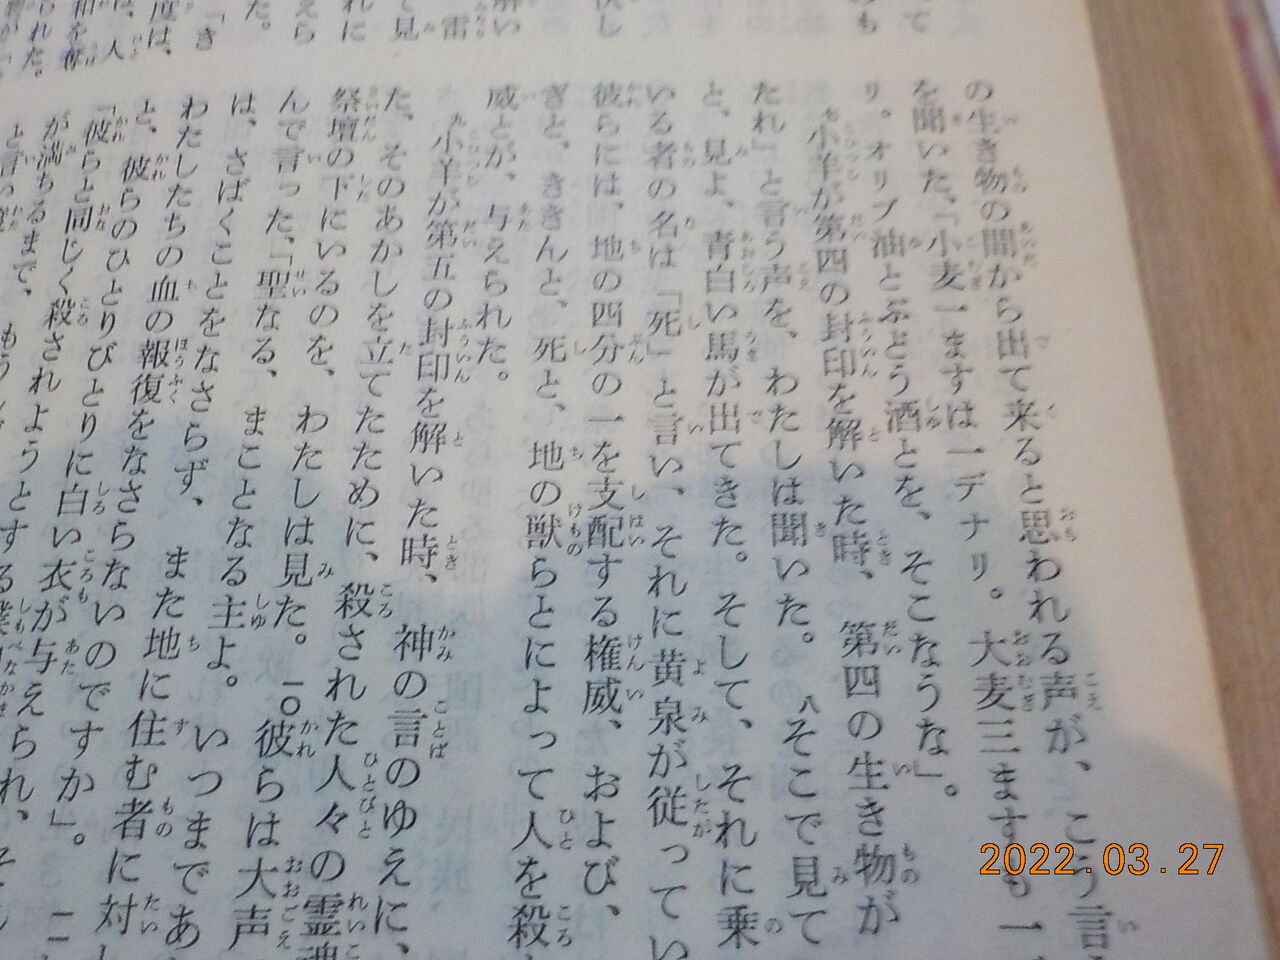 の生き物の間から出て来ると思われる声が、こう言
を聞いた、「小麦一ますは一デナリ。大麦三ますも一
リ。オリブ油とぶどう酒とを、そこなうな」。
七小羊が第四の封印を解いた時、第四の生き物が
たれ」と言う声を、わたしは聞いた。八そこで見て
と、見よ、青白い馬が出てきた。そして、それに乗
いる者の名は「死」と言い、それに黄泉が従ってい
彼らには、地の四分の一を支配する権威、および、
ぎと、ききんと、死と、地の獣らとによって人を殺
威とが、与えられた。
九小羊が第五の封印を解いた時、神の言のゆえに、
た、そのあかしを立てたために、殺された人々の霊魂
祭壇の下にいるのを、わたしは見た。一〇彼らは大声
んで言った、「聖なる、まことなる主よ。いつまであ
は、さばくことをなさらず、また地に住む者に対
わたしたちの血の報復をなさらないのですか」。一
と、彼らのひとりびとりに白い衣が与えられ、
「彼らと同じく殺されようとする僕
が満ちるまで、もうし
と言い渡